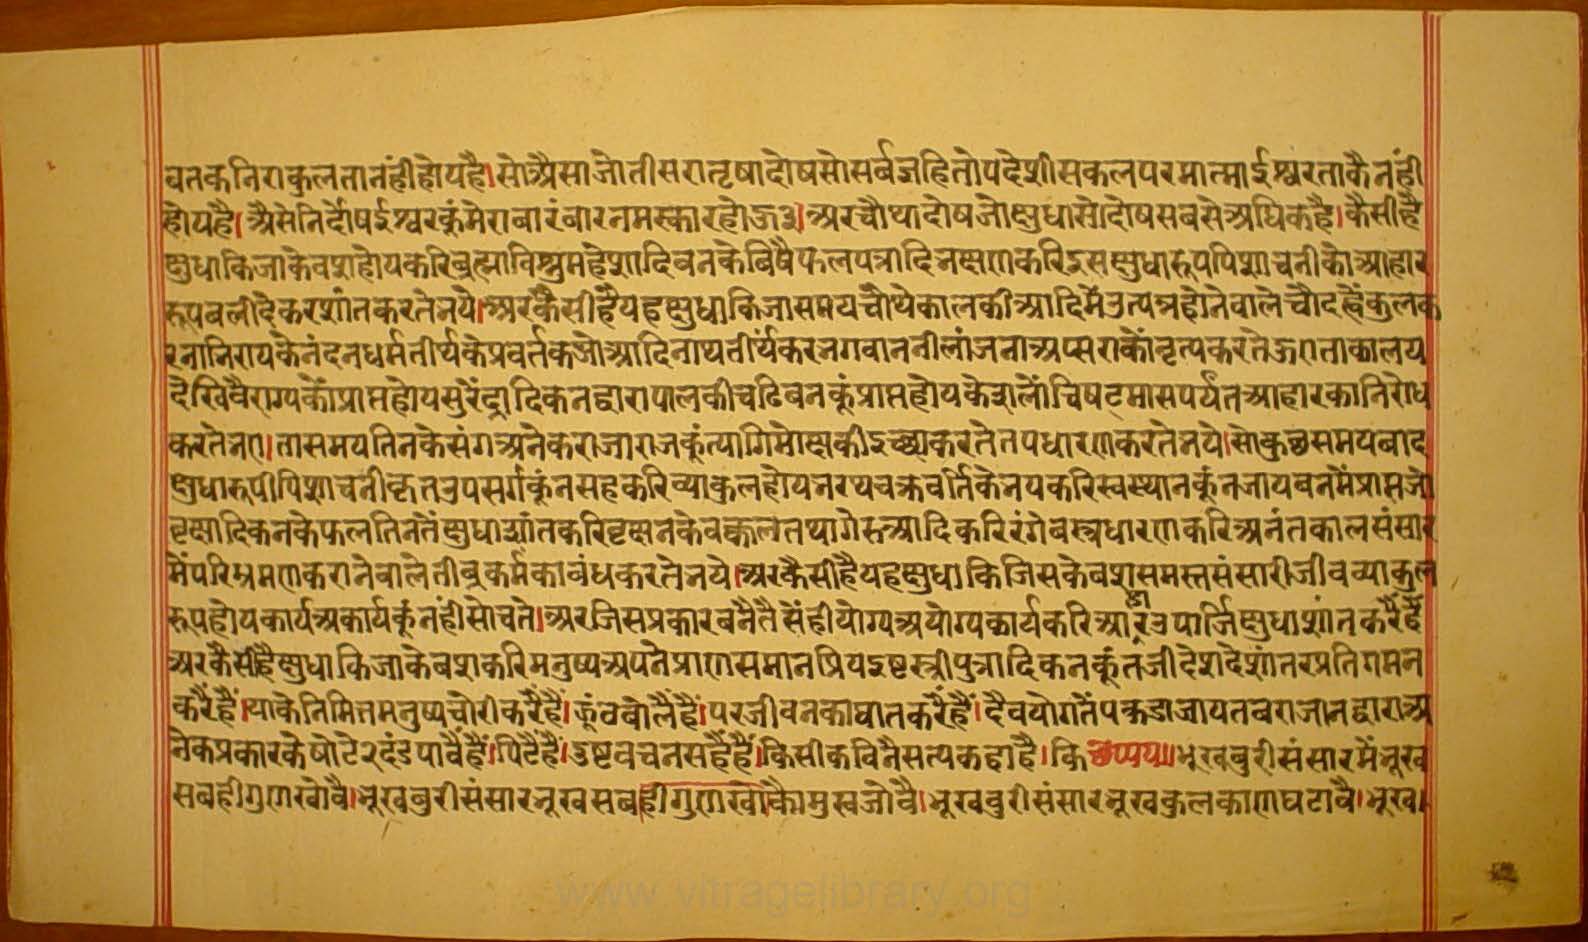 वतकनिराकुलतानंहीहोयहै।सोअैसाजोतीसरातृषादोषसोसर्वज्ञहितोपदेशीसकलपरमात्माईश्वरताकैनंही
होयहै।अैसेनिर्दोषईश्वरकुंमेराबारंबारनमस्कारहोऊ३।अरचौथादोषजोक्षुधासोदोषसबसेअधिकहै।कैसीहै
क्षुधाकिजाकेवशहोयकरिब्रह्माविष्णुमहेशादिबनकेबिषैफलपत्रादिभक्षणकरिइसक्षुधारूपपिशाचनीकोआहार
रूपबलीदेकरशांतकरतेभये।अरकैसीहैयहक्षुधाकिजासमयचौथेकालकीआदिमेंउत्पन्नहोनेवालेचौदह्वेंकुलक
रनाभिरायकेनंदनधर्मतीर्थकेप्रवर्तकजोआदिनाथतीर्थंकरभगवाननीलांजनाअप्सराकोंनृत्यकरतेऊताकालय
देखिवैराग्यकोंप्राप्तहोयसुरेंद्रादिकनद्वारापालकीचढिबनकुंप्राप्तहोयकेशलोंचिषटमासपर्यंतआहारकानिरोध
करतेभए।तासमयतिनकेसंगअनेकराजाराजकुंत्यागिमोक्षकीइच्छाकरतेतपधारणकरतेभये।सोकुछसमयबाद
क्षुधारूपीपिशाचनीकृतउपसर्गकुंनसहकरिव्याकुलहोयभरथचक्रवर्तिकेभयकरिस्वस्थानकुंनजायवनमेंप्राप्तजो
वृक्षादिकनकेफलतिनतेंक्षुधाशांतकरिवृक्षनकेवक्कलतथागेरूआदिकरिरंगेवस्त्रधारणकरिअनंतकालसंसार
मेंपरिभ्रमणकरानेवालेतीव्रकर्मकाबंधकरतेभये।अरकैसीहैयहक्षुधाकिजिसकेवशसमस्तसंसारीजीवव्याकुल
रूपहोयकार्यअकार्यकुंनंहीसोचते।अरजिसप्रकारबनैतैसेंहीयोग्यअयोग्यकार्यकरिआहारउपार्जिक्षुधाशांतकरैंहैं
अरकैसीहैक्षुधाकिजाकेबशकरिमनुष्यअपनेप्राणसमानप्रियइष्टस्त्रीपुत्रादिकनकुंतजीदेशदेशांतरप्रतिगमन
करैंहैं।याकेनिमित्तमनुष्यचोरीकरैंहैं।फूंठबोलैंहैं।परजीवनकाघातकरैंहैं।दैवयोगतेंपकडाजायतबराजानद्वाराअ
नेकप्रकारकेषोटे२दंडपावैंहैं।पिटैंहैं।दुष्टवचनसहैंहैं।किसीकविनैसत्यकहाहै।कि छप्पय॥भूखबुरीसंसारमेंभूख
सबहीगुणखोवै।भूखबुरीसंसारभूखसबहीगुणखोकैामुखजोवै।भूखबुरीसंसारभूखकुलकाणघटावै।भूख।
www.vitragelibrary.org